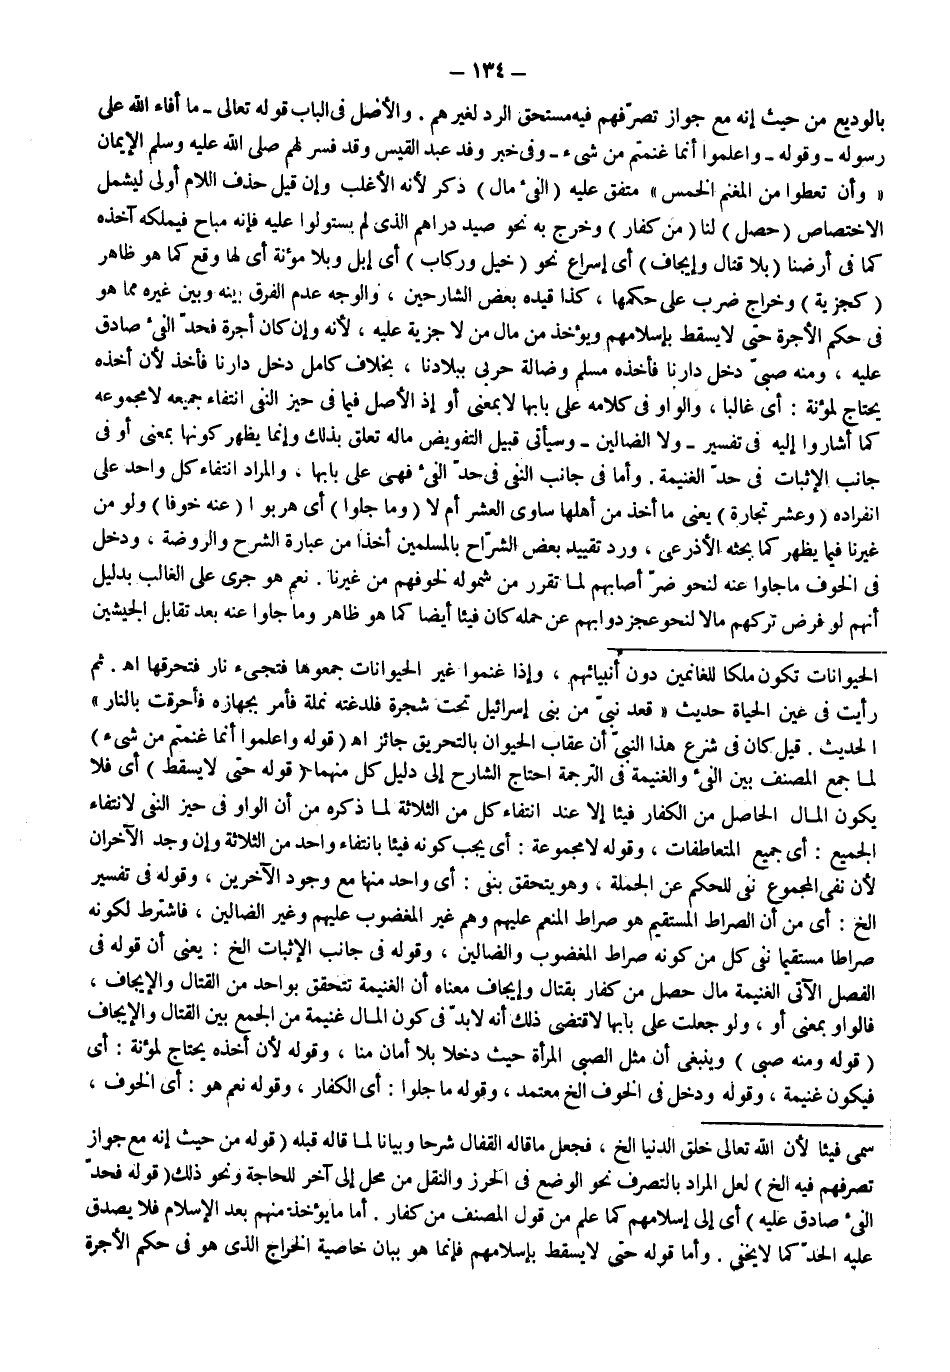 – ١٣٤ –
بالوديع من حيث إنه مع جواز تصرّفهم فيه مستحق الرد لغيرهم . والأصل فى الباب قوله تعالى ـ ما أفاء الله على
رسوله ـ وقوله ـ واعلموا أنما غنمتم من شىء ـ وفى خبر وفد عبد القيس وقد فسر لهم صلى الله عليه وسلم الإيمان
« وأن تعطوا من المغنم الخمس » متفق عليه ( الفىء مال ) ذكر لأنه الأغلب وإن قيل حذف اللام أولى ليشمل
الاختصاص ( حصل ) لنا ( من كفار ) وخرج به نحو صيد دراهم الذى لم يستولوا عليه فإنه مباح فيملكه آخذه
كما فى أرضنا ( بلا قتال وإيجاف ) أى إسراع نحو ( خيل وركاب ) أى إبل وبلا مؤنة أى لها وقع كما هو ظاهر
( كجزية ) وخراج ضرب على حكمها ، كذا قيده بعض الشارحين ، والوجه عدم الفرق بينه وبين غيره مما هو
فى حكم الأجرة حتى لايسقط بإسلامهم ويؤخذ من مال من لا جزية عليه ، لأنه وإن كان أجرة فحدّ الفىء صادق
عليه ، ومنه صبىّ دخل دارنا فأخذه مسلم وضالة حربى ببلادنا ، بخلاف كامل دخل دارنا فأخذ لأن أخذه
يحتاج لمؤنة : أى غالبا ، والواو فى كلامه على بابها لابمعنى أو إذ الأصل فيما فى حيز النفى انتفاء جميعه لامجموعه
كما أشاروا إليه فى تفسير ـ ولا الضالين ـ وسيأتى قبيل التفويض ماله تعلق بذلك وإنما يظهر كونها بمعنى أو فى
جانب الإثبات فى حدّ الغنيمة . وأما فى جانب النفى فى حدّ الفىء فهى على بابها ، والمراد انتفاء كل واحد على
انفراده ( وعشر تجارة ) يعنى ما أخذ من أهلها ساوى العشر أم لا ( وما جلوا ) أى هربوا ( عنه خوفا ) ولو من
غيرنا فيما يظهر كما بحثه الأذرعى ، ورد تقييد بعض الشرّاح بالمسلمين أخذا من عبارة الشرح والروضة ، ودخل
فى الخوف ماجلوا عنه لنحو ضرّ أصابهم لما تقرر من شموله لخوفهم من غيرنا . نعم هو جرى على الغالب بدليل
أنهم لو فرض تركهم مالا لنحو عجز دوابهم عن حمله كان فيئا أيضا كما هو ظاهر وماجلوا عنه بعد تقابل الجيشين
الحيوانات تكون ملكا للغانمين دون أنبيائهم ، وإذا غنموا غير الحيوانات جمعوها فتجىء نار فتحرقها اهـ . ثم
رأيت فى عين الحياة حديث « قعد نبىّ من بنى إسرائيل تحت شجرة فلدغته نملة فأمر بجهازه فأحرقت بالنار »
الحديث . قيل كان فى شرع هذا النبىّ أن عقاب الحيوان بالتحريق جائز اهـ ( قوله واعلموا أنما غنمتم من شىء )
لما جمع المصنف بين الفىء والغنيمة فى الترجمة احتاج الشارح إلى دليل كل منهما ( قوله حتى لايسقط ) أى فلا
يكون المال الحاصل من الكفار فيئا إلا عند انتفاء كل من الثلاثة لما ذكره من أن الواو فى حيز النفى لانتفاء
الجميع : أى جميع المتعاطفات ، وقوله لامجموعة : أى يجب كونه فيئا بانتفاء واحد من الثلاثة وإن وجد الآخران
لأن نفى المجموع نفى للحكم عن الجملة ، وهو يتحقق بنفى : أى واحد منها مع وجود الآخرين ، وقوله فى تفسير
الخ : أى من أن الصراط المستقيم هو صراط المنعم عليهم وهم غير المغضوب عليهم وغير الضالين ، فاشترط لكونه
صراطا مستقيما نفى كل من كونه صراط المغضوب والضالين ، وقوله فى جانب الإثبات الخ : يعنى أن قوله فى
الفصل الآتى الغنيمة مال حصل من كفار بقتال وإيجاف معناه أن الغنيمة تتحقق بواحد من القتال والإيجاف ،
فالواو بمعنى أو ، ولو جعلت على بابها لاقتضى ذلك أنه لابدّ فى كون المال غنيمة من الجمع بين القتال والإيجاف
( قوله ومنه صبى ) وينبغى أن مثل الصبى المرأة حيث دخلا بلا أمان منا ، وقوله لأن أخذه يحتاج لمؤنة : أى
فيكون غنيمة ، وقوله ودخل فى الخوف الخ معتمد ، وقوله ماجلوا : أى الكفار ، وقوله نعم هو : أى الخوف ،
سمى فيئا لأن الله تعالى خلق الدنيا الخ ، فجعل ماقاله القفال شرحا وبيانا لما قاله قبله ( قوله من حيث إنه مع جواز
تصرفهم فيه الخ ) لعل المراد بالتصرف نحو الوضع فى الحرز والنقل من محل إلى آخر للحاجة ونحو ذلك ( قوله فحدّ
الفىء صادق عليه ) أى إلى إسلامهم كما علم من قول المصنف من كفار . أما مايؤخذ منهم بعد الإسلام فلا يصدق
عليه الحدّ كما لايخفى . وأما قوله حتى لايسقط بإسلامهم فإنما هو بيان خاصية الخراج الذى هو فى حكم الأجرة